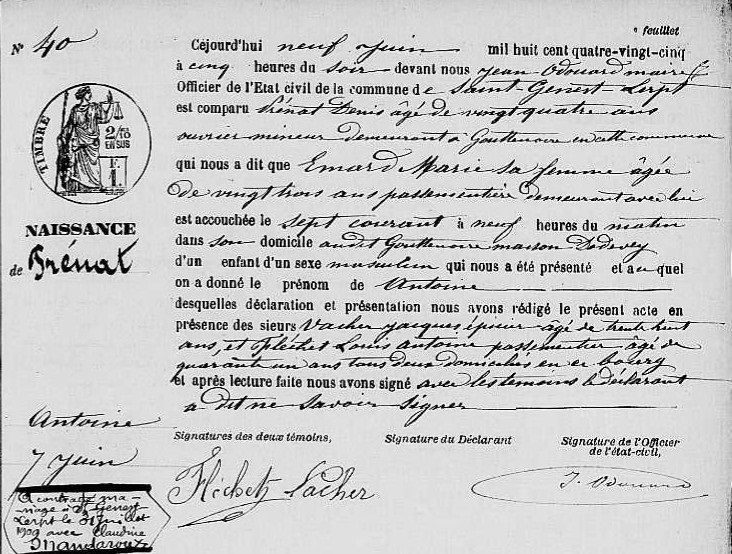 feuillet
N° 40
Cejourd'hui neuf Juin mil huit cent quatre-vingt-cinq
à cinq heures du soir devant nous Jean Odouard maire
Officier de l'Etat civil de la commune de Saint-Genest Lerpt
est comparu Frénat Denis âgé de vingt quatre ans
ouvrier mineur demeurant à Gouttenoire en cette commune
qui nous a dit que Emard Marie sa femme âgée
de vingt trois ans passementière demeurant avec lui
est accouchée le sept courant à neuf heures du matin
dans son domicile audit Gouttenoire maison Dodevey
d'un enfant d'un sexe masculin qui nous a été présenté et auquel
on a donné le prénom de Antoine
desquelles déclaration et présentation nous avons rédigé le présent acte en
présence des sieurs Vacher Jacques, épicier âgé de trente huit
ans, et Fléchet Louis Antoine passementier âgé de
quarante un ans tous deux domiciliés en ce bourg
et après lecture faite nous avons signé avec les temoins le déclarant
a dit ne savoir signer
TIMBRE
2/10
EN SUS
F.
1.
NAISSANCE
de Frénat
Antoine
7 Juin
A contracté ma-
riage à St Genest
Lerpt le 31 Juillet
1909 avec Claudine
Mandaroux
Signatures des deux témoins,
Signature du Déclarant
Signature de l'Officier
de l'état-civil,
Fléchet Vacher
J. Odouard